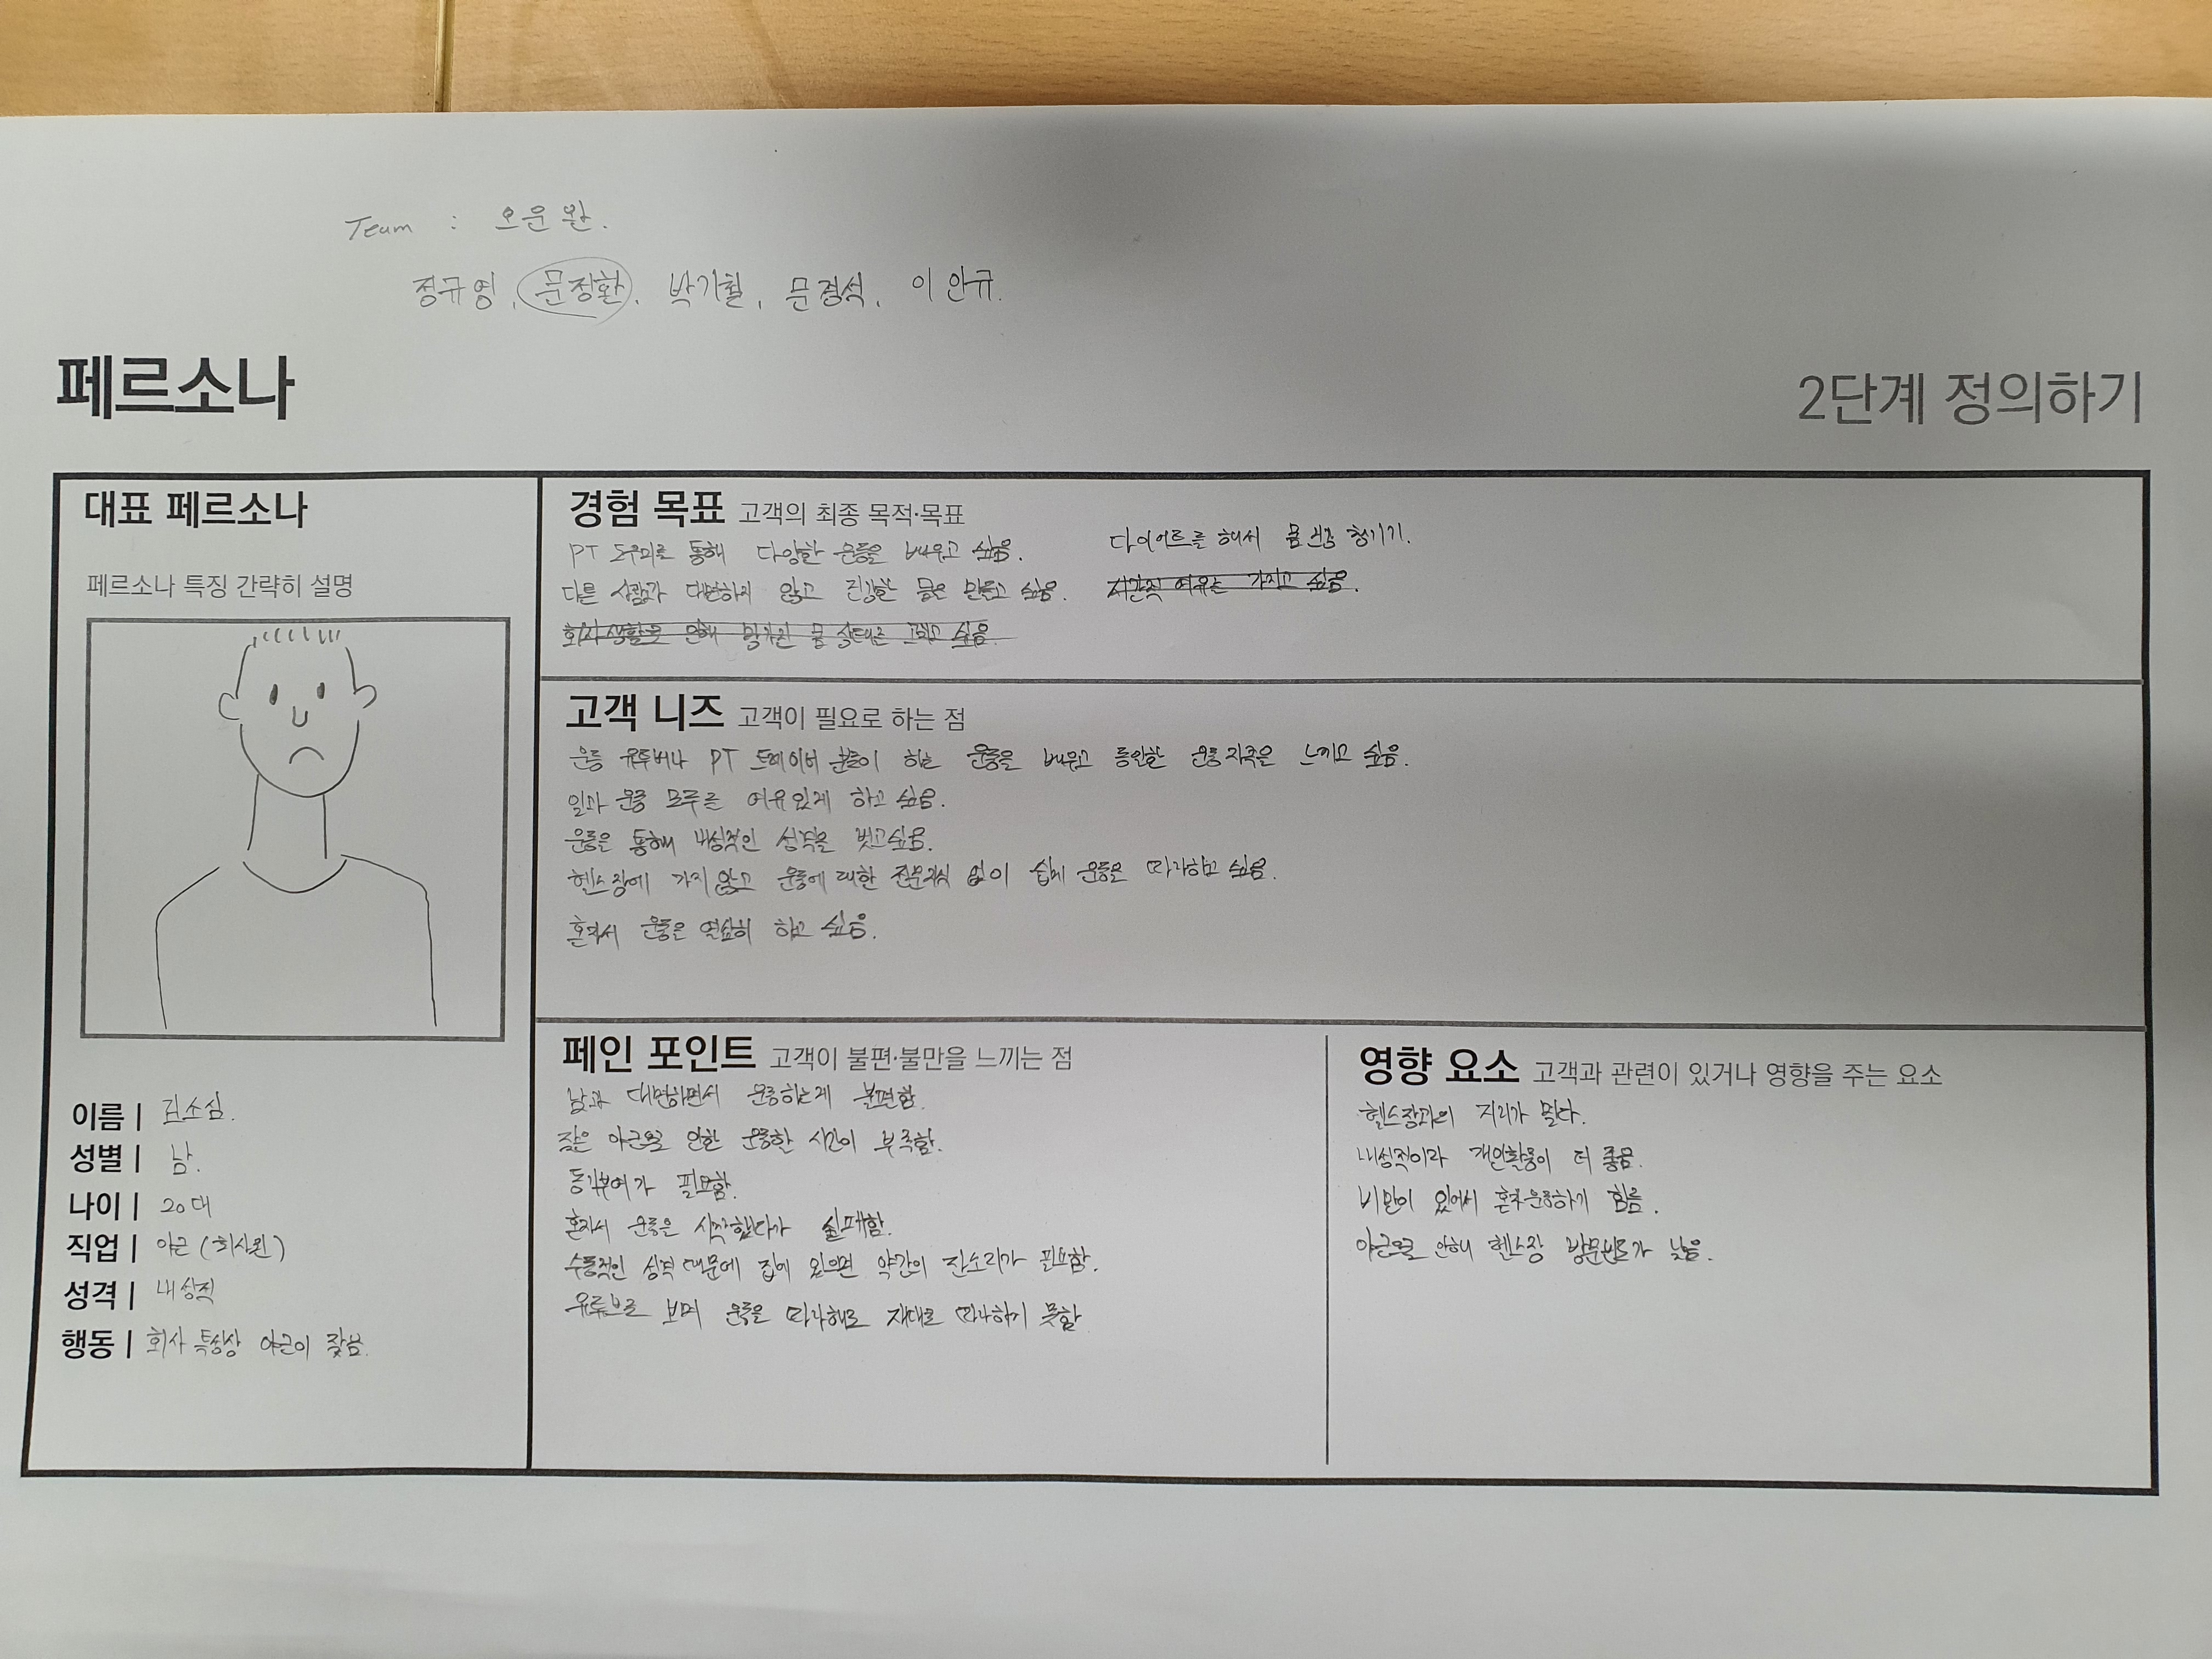 Team : 오운완.
정규영, 문장환, 박기철, 문경석, 이안규.
페르소나
2단계 정의하기
대표 페르소나
페르소나 특징 간략히 설명
이름 | 김소심.
성별 | 남.
나이 | 20대
직업 | 야근 (회사원)
성격 | 내성적
행동 | 회사 특성상 야근이 잦음.
경험 목표 고객의 최종 목적·목표
PT 도우미로 통해 다양한 운동을 배우고 싶음.
다른 사람과 대면하지 않고 건강한 몸을 만들고 싶음.
회사생활로 인해 망가진 몸 상태를 고치고 싶음.
다이어트를 해서 몸 건강 챙기기.
시간적 여유를 가지고 싶음.
고객 니즈 고객이 필요로 하는 점
운동 유투버나 PT 트레이너 분들이 하는 운동을 배우고 동일한 운동자극을 느끼고 싶음.
일과 운동 모두를 여유있게 하고 싶음.
운동을 통해 내성적인 성격을 벗고싶음.
헬스장에 가지 않고 운동에 대한 전문지식 없이 쉽게 운동을 따라하고 싶음.
혼자서 운동을 열심히 하고 싶음.
페인 포인트 고객이 불편·불만을 느끼는 점
남과 대면하면서 운동하는게 불편함.
잦은 야근으로 인한 운동할 시간이 부족함.
동기부여가 필요함.
혼자서 운동을 시작했다가 실패함.
수동적인 성격 때문에 집에 있으면 약간의 잔소리가 필요함.
유튜브로 보며 운동을 따라해도 제대로 따라하기 못함
영향 요소 고객과 관련이 있거나 영향을 주는 요소
헬스장과의 거리가 멀다.
내성적이라 개인활동이 더 좋음.
비만이 있어서 혼자운동하기 힘듦.
야근으로 인해 헬스장 방문빈도가 낮음.